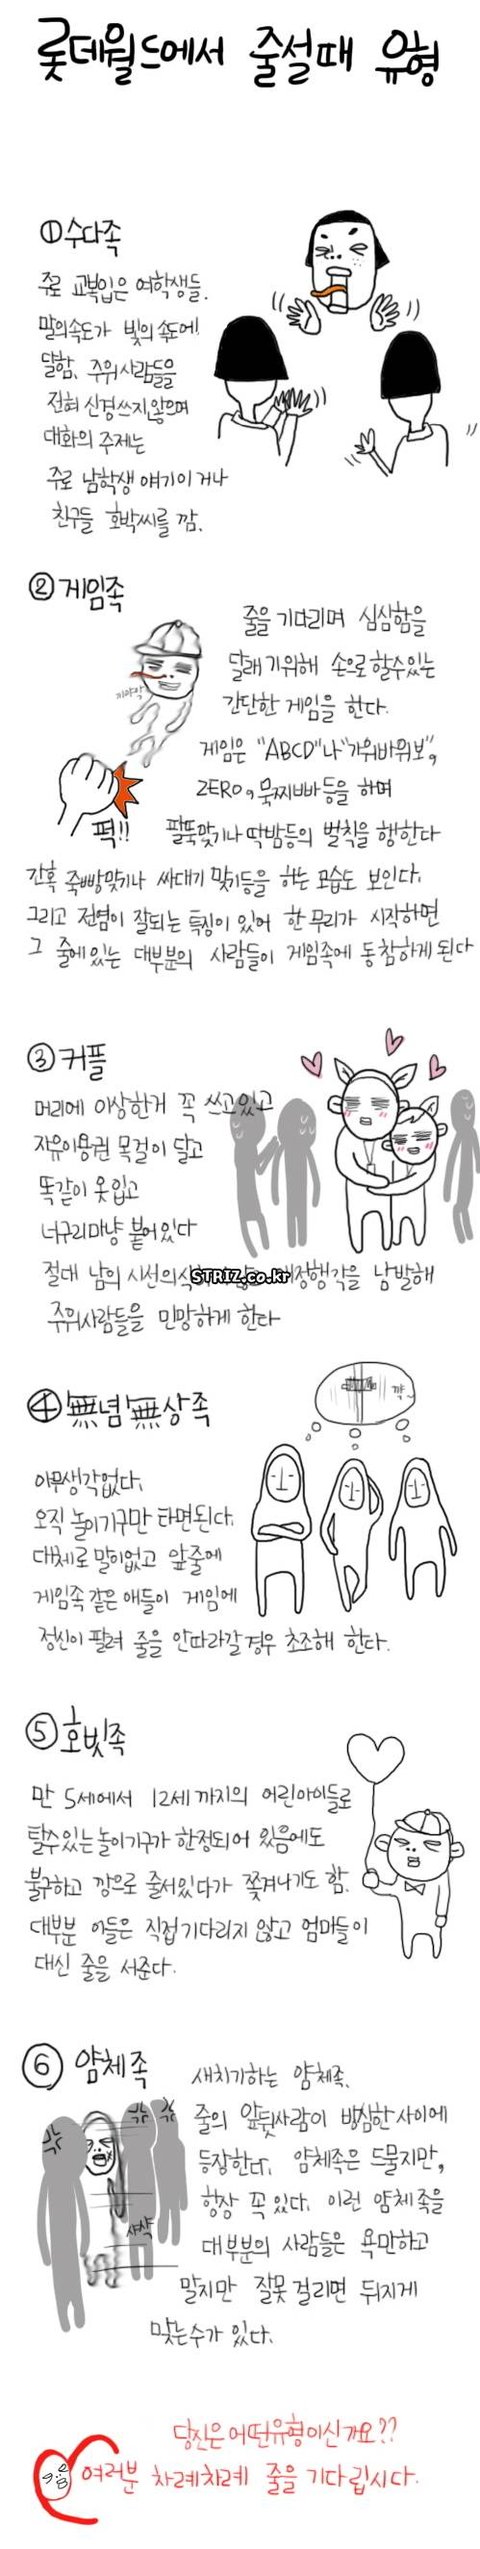 롯데월드에서 줄설때 유형
①수다족
주로 교복입은 여학생들.
말의속도가 빛의 속도에
달함. 주위사람들을
전혀 신경쓰지않으며
대화의 주제는
주로 남학생 얘기이거나
친구들 호박씨를 깜.
②게임족
줄을 기다리며 심심함을
달래기위해 손으로 할수있는
간단한 게임을 한다.
게임은 "ABCD"나 "가위바위보",
ZERO, 묵찌빠 등을 하며
팔뚝맞기나 딱밤등의 벌칙을 행한다
간혹 죽빵맞기나 싸대기 맞기등을 하는 모습도 보인다.
그리고 전염이 잘되는 특징이 있어 한 무리가 시작하면
그 줄에있는 대부분의 사람들이 게임족에 동참하게 된다
끼야악
퍽!!
③커플
머리에 이상한거 꼭 쓰고있고
자유이용권 목걸이 달고
똑같이 옷입고
너구리마냥 붙어있다
절대 남의 시선의식
행각을 남발해
주위사람들을 민망하게 한다
STRIZ.co.kr
④無념無상족
아무생각없다.
오직 놀이기구만 타면된다.
대체로 말이없고 앞줄에
게임족 같은 애들이 게임에
정신이 팔려 줄을 안따라갈경우 초조해 한다.
꺅~
⑤호빗족
만 5세에서 12세까지의 어린아이들로
탈수있는 놀이기구가 한정되어 있음에도
불구하고 깡으로 줄서있다가 쫓겨나기도 함.
대부분 이들은 직접 기다리지 않고 엄마들이
대신 줄을 서준다.
⑥얌체족
새치기하는 얌체족.
줄의 앞뒷사람이 방심한 사이에
등장한다. 얌체족은 드물지만,
항상 꼭 있다. 이런 얌체족을
대부분의 사람들은 욕만하고
말지만 잘못 걸리면 뒤지게
맞는수가 있다.
샤샥
당신은 어떤유형이신가요??
여러분 차례차례 줄을 기다립시다.